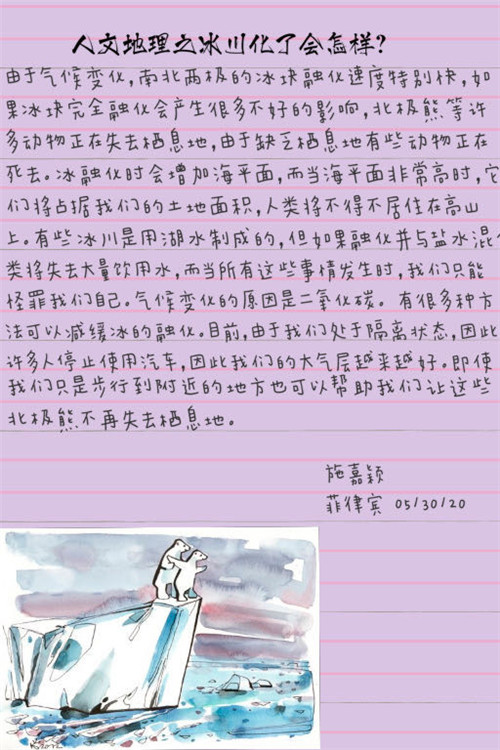 人文地理之冰川化了会怎样?
由于气候变化,南北两极的冰块融化速度特别快,如
果冰块完全融化会产生很多不好的影响,北极熊等许
多动物正在失去栖息地,由于缺乏栖息地有些动物正在
死去。冰融化时会增加海平面,而当海平面非常高时,它
们将占据我们的土地面积,人类将不得不居住在高山
上。有些冰川是用湖水制成的,但如果融化并与盐水混
类将失去大量饮用水,而当所有这些事情发生时,我们只能
怪罪我们自己。气候变化的原因是二氧化碳。有很多种方
法可以减缓冰的融化。目前,由于我们处于隔离状态,因此
许多人停止使用汽车,因此我们的大气层越来越好。即使
我们只是步行到附近的地方也可以帮助我们让这些
北极熊不再失去栖息地。
施嘉颖
菲律宾 05/30/20